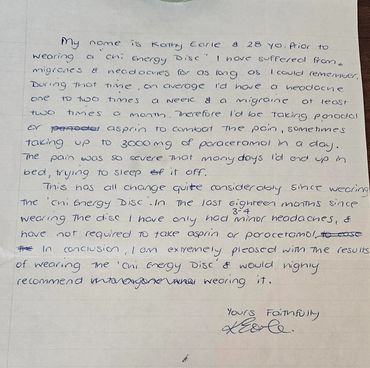 My name is Kathy Earle & 28 yo. Prior to
wearing a 'Chi Energy Disc' I have suffered from
migraines & headaches for as long as I could remember.
During that time, on average I'd have a headache
one to two times a week & a migraine at least
two times a month. Therefore I'd be taking panadol
or asprin to combat the pain, sometimes
taking up to 3000mg of paracetamol in a day.
The pain was so severe that many days I'd end up in
bed, trying to sleep it off.
This has all change quite considerably since wearing
the 'Chi Energy Disc'. In the last eighteen months since
wearing the disc I have only had 3-4 minor headaches, &
have not required to take asprin or paracetamol. to ease
the In conclusion, I am extremely pleased with the results
of wearing the 'Chi Energy Disc' & would highly
recommend wearing it.
Yours Faithfully
KEarle.